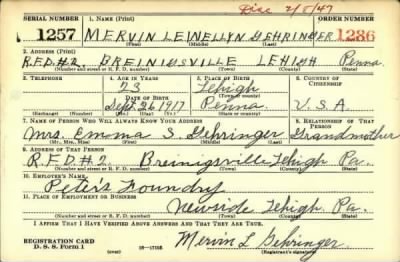 Disc 2/8/47
SERIAL NUMBER 1. NAME (Print) ORDER NUMBER
1257 MERVIN LEWELLYN GEHRINGER 1286
(First) (Middle) (Last)
2. ADDRESS (Print)
R.F.D.#2. BREINIGSVILLE LEHIGH Penna.
(Number and street or R. F. D. number) (Town) (County) (State)
3. TELEPHONE 4. AGE IN YEARS 5. PLACE OF BIRTH 6. COUNTRY OF CITIZENSHIP
23 Lehigh
DATE OF BIRTH (Town or county)
Sept. 26 1917 Penna. U.S.A.
(Mo.) (Day) (Yr.) (State or country)
7. NAME OF PERSON WHO WILL ALWAYS KNOW YOUR ADDRESS 8. RELATIONSHIP OF THAT PERSON
Mrs. Emma S. Gehringer Grandmother
(Mr., Mrs., Miss) (First) (Middle) (Last)
9. ADDRESS OF THAT PERSON
R.F.D.#2. Breinigsville Lehigh Pa.
(Number and street or R. F. D. number) (Town) (County) (State)
10. EMPLOYER'S NAME
Peter's Foundry
11. PLACE OF EMPLOYMENT OR BUSINESS
Newside Lehigh Pa.
(Number and street or R. F. D. number) (Town) (County) (State)
I AFFIRM THAT I HAVE VERIFIED ABOVE ANSWERS AND THAT THEY ARE TRUE.
REGISTRATION CARD
D. S. S. Form 1 16-17105 Mervin L Gehringer
(Registrant's signature)